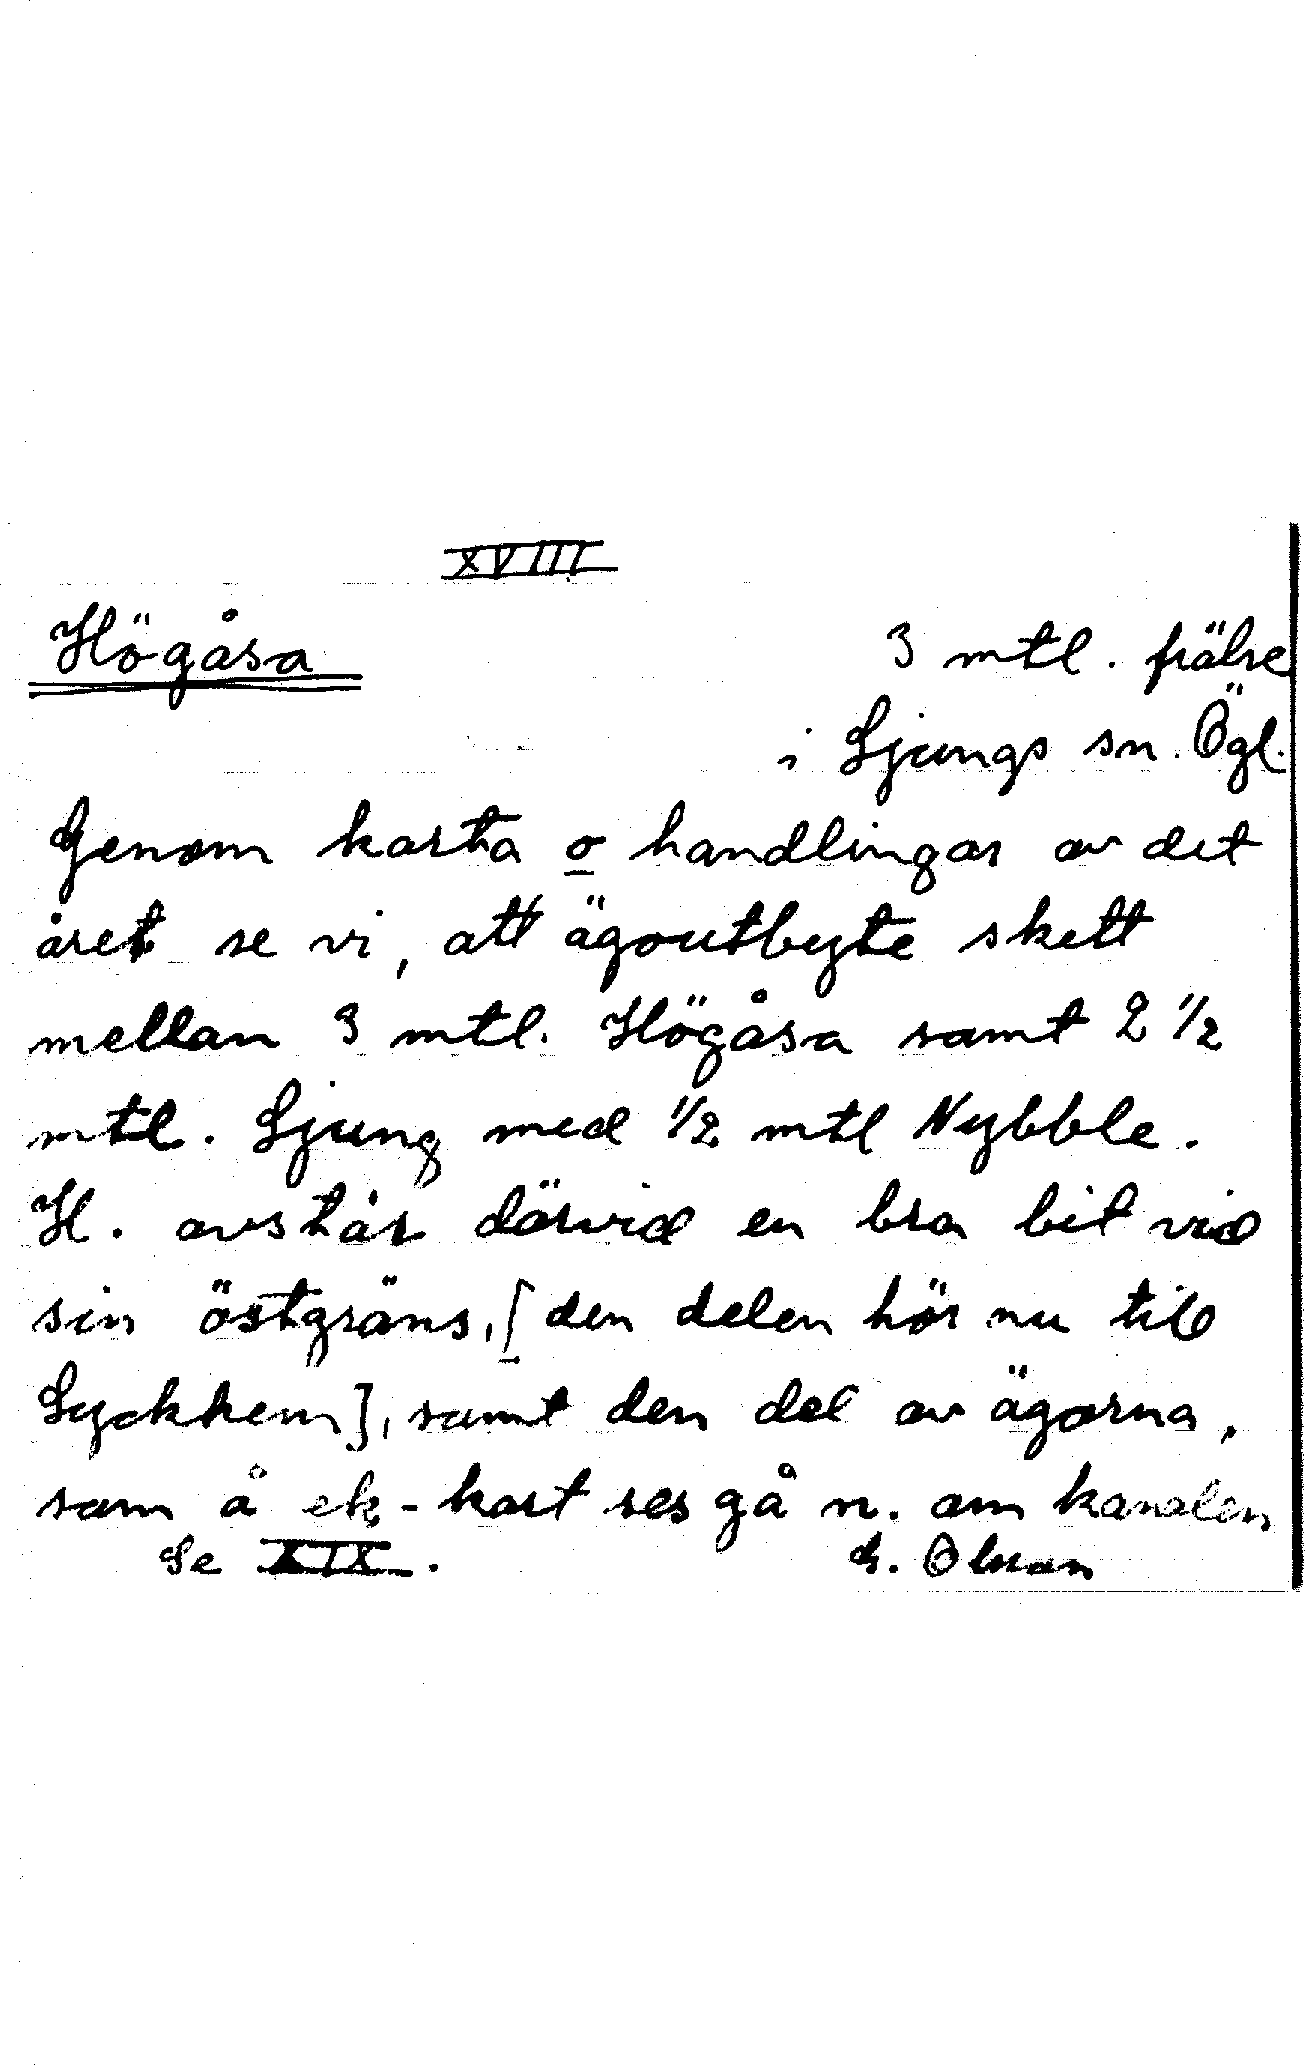 XVIII
Högåsa 3 mtl. frälse
i Ljungs sn. Ögl.
Genom karta o handlingar av det
året se vi, att ägoutbyte skett
mellan 3 mtl. Högåsa samt 2 1/2
mtl. Ljung med 1/2 mtl Nybble.
H. avstår därvid en bra bit vid
sin östgräns, [den delen hör nu till
Lyckhem], samt den del av ägorna,
som å ek-kart ses gå n. om kanalen
Se XIX. G. Olsson